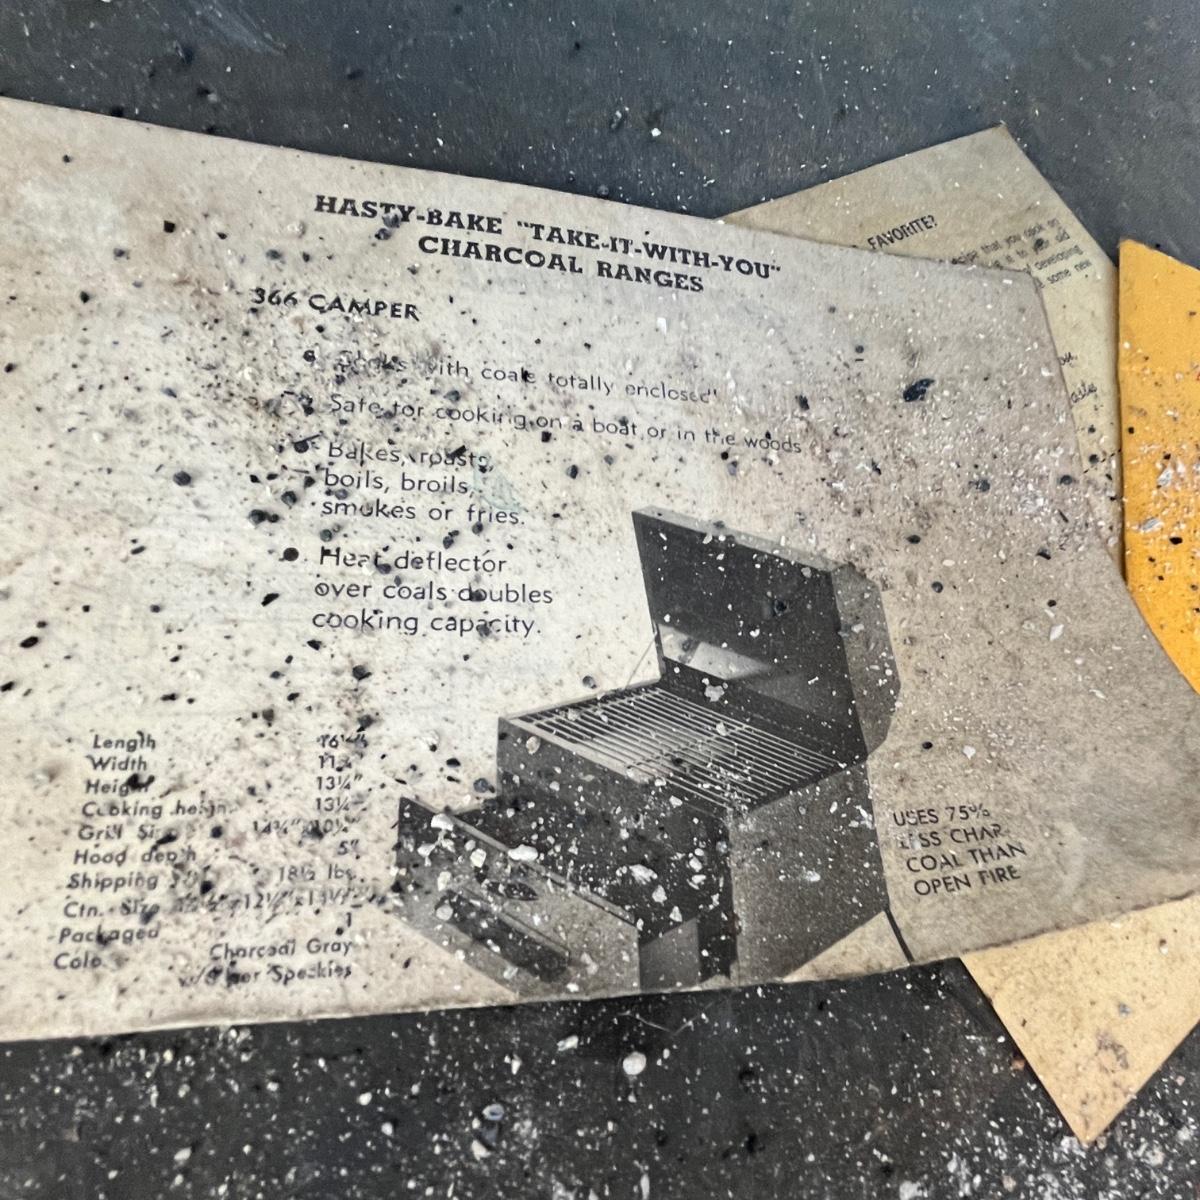 HASTY-BAKE "TAKE-IT-WITH-YOU"
CHARCOAL RANGES
366 CAMPER
with coals totally enclosed"
Safe for cooking on a boat or in the woods
• Bakes, roasts,
boils, broils,
smokes or fries.
• Heat deflector
over coals doubles
cooking capacity.
Length
Width
Height 13¼"
Cooking height 13¼"
Grill Size
Hood depth 5"
Shipping 18½ lbs.
Ctn. Size
Packaged 1
Color Charcoal Gray
w/Silver Speckles
USES 75%
LESS CHAR-
COAL THAN
OPEN FIRE
FAVORITE?
that you cook on
developing
some new